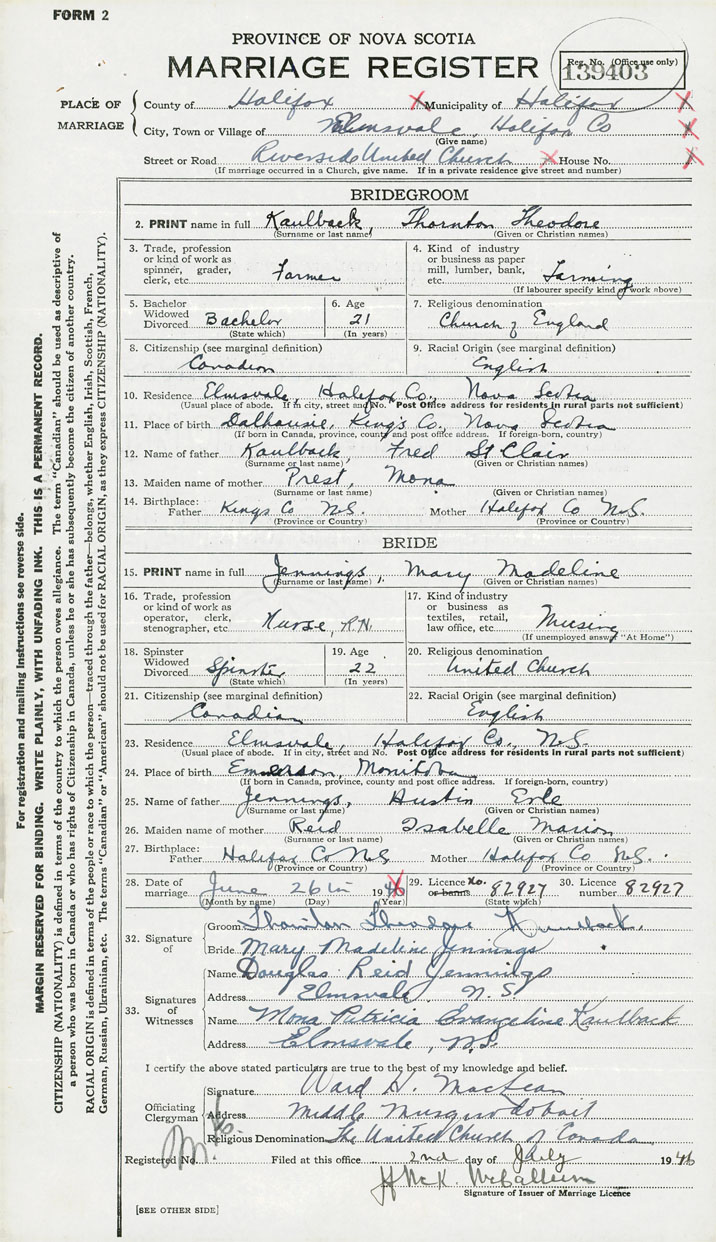 FORM 2
PROVINCE OF NOVA SCOTIA
MARRIAGE REGISTER
Reg. No. (Office use only)
139403
PLACE OF MARRIAGE
County of Halifax Municipality of Halifax
City, Town or Village of Elmsvale, Halifax Co
(Give name)
Street or Road Riverside United Church House No.
(If marriage occurred in a Church, give name. If in a private residence give street and number)
BRIDEGROOM
2. PRINT name in full Kaulback, Thornton Theodore
(Surname or last name) (Given or Christian names)
3. Trade, profession or kind of work as spinner, grader, clerk, etc. Farmer
4. Kind of industry or business as paper mill, lumber, bank, etc. Farming
(If labourer specify kind of work above)
5. Bachelor Widowed Divorced Bachelor
(State which)
6. Age 21
(In years)
7. Religious denomination
Church of England
8. Citizenship (see marginal definition)
Canadian
9. Racial Origin (see marginal definition)
English
10. Residence Elmsvale, Halifax Co., Nova Scotia
(Usual place of abode. If in city, street and No. Post Office address for residents in rural parts not sufficient)
11. Place of birth Dalhousie, King's Co, Nova Scotia
(If born in Canada, province, county and post office address. If foreign-born, country)
12. Name of father Kaulback, Fred St Clair
(Surname or last name) (Given or Christian names)
13. Maiden name of mother Prest, Mona
(Surname or last name) (Given or Christian names)
14. Birthplace: Father Kings Co N.S. Mother Halifax Co N.S.
(Province or Country) (Province or Country)
BRIDE
15. PRINT name in full Jennings, Mary Madeline
(Surname or last name) (Given or Christian names)
16. Trade, profession or kind of work as operator, clerk, stenographer, etc. Nurse, R.N.
17. Kind of industry or business as textiles, retail, law office, etc. Nursing
(If unemployed answer "At Home")
18. Spinster Widowed Divorced Spinster
(State which)
19. Age 22
(In years)
20. Religious denomination
United Church
21. Citizenship (see marginal definition)
Canadian
22. Racial Origin (see marginal definition)
English
23. Residence Elmsvale, Halifax Co., N.S.
(Usual place of abode. If in city, street and No. Post Office address for residents in rural parts not sufficient)
24. Place of birth Emerson, Manitoba
(If born in Canada, province, county and post office address. If foreign-born, country)
25. Name of father Jennings, Austin Erle
(Surname or last name) (Given or Christian names)
26. Maiden name of mother Reid Isabelle Marion
(Surname or last name) (Given or Christian names)
27. Birthplace: Father Halifax Co N.S. Mother Halifax Co N.S.
(Province or Country) (Province or Country)
28. Date of marriage June 26th 1946
(Month by name) (Day) (Year)
29. Licence No. or banns 82927
(State which)
30. Licence number 82927
32. Signature of
Groom Thornton Theodore Kaulback
Bride Mary Madeline Jennings
33. Signatures of Witnesses
Name Douglas Reid Jennings
Address Elmsvale, N.S.
Name Mona Patricia Evangeline Kaulback
Address Elmsvale, N.S.
I certify the above stated particulars are true to the best of my knowledge and belief.
Officiating Clergyman
Signature Ward H. MacLean
Address Middle Musquodoboit
Religious Denomination The United Church of Canada
Registered No. Filed at this office 2nd day of July 1946
McCallum
Signature of Issuer of Marriage Licence
[SEE OTHER SIDE]
For registration and mailing instructions see reverse side.
MARGIN RESERVED FOR BINDING. WRITE PLAINLY, WITH UNFADING INK. THIS IS A PERMANENT RECORD.
CITIZENSHIP (NATIONALITY) is defined in terms of the country to which the person owes allegiance. The term "Canadian" should be used as descriptive of
a person who was born in Canada or who has rights of Citizenship in Canada, unless he or she has subsequently become the citizen of another country.
RACIAL ORIGIN is defined in terms of the people or race to which the person—traced through the father—belongs, whether English, Irish, Scottish, French,
German, Russian, Ukrainian, etc. The terms "Canadian" or "American" should not be used for RACIAL ORIGIN, as they express CITIZENSHIP (NATIONALITY).